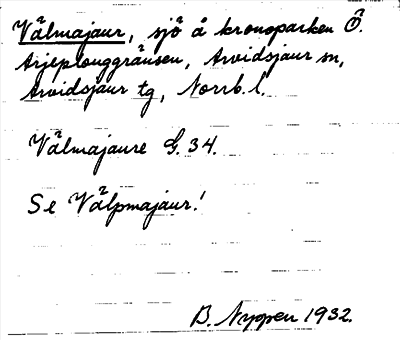 Välmajaur, sjö å kronoparken Ö.
Arjeplouggränsen, Arvidsjaur sn,
Arvidsjaur tg, Norrb. l.
Välmajaure G. 34.
Se Välpmajaur!
B. Nyppen 1932.